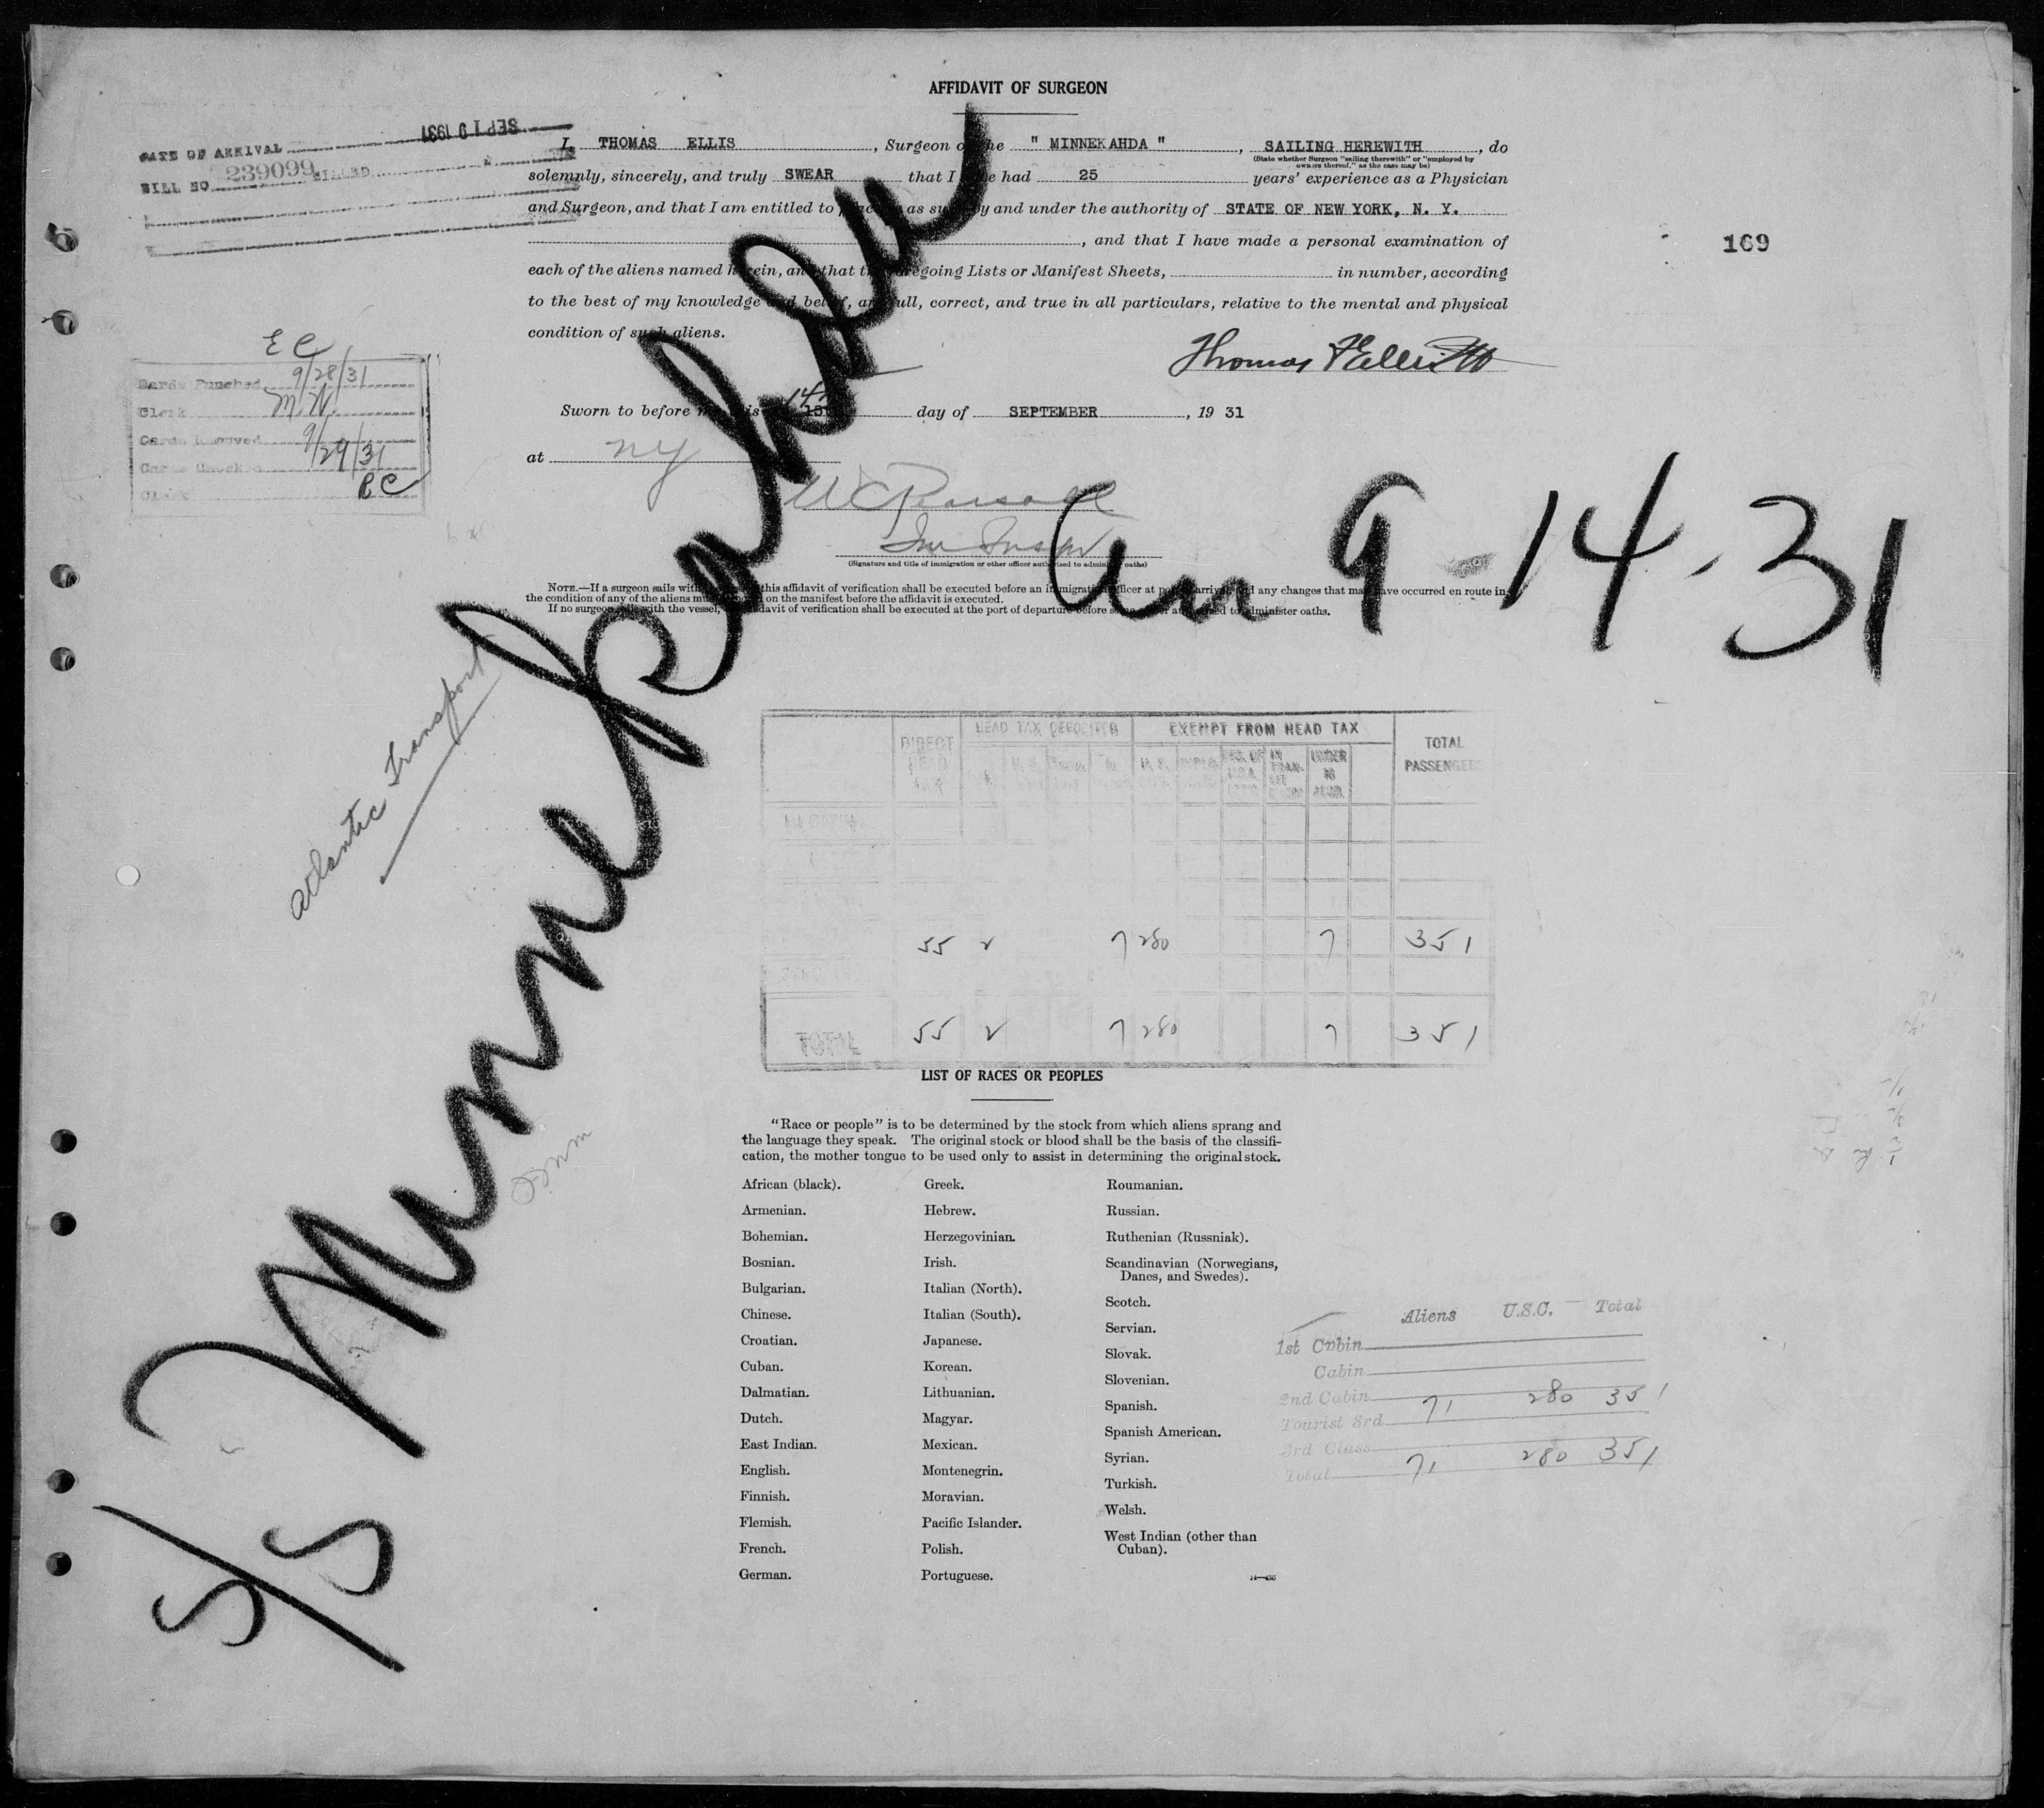 AFFIDAVIT OF SURGEON
SEP 19 1931
DATE OF ARRIVAL
BILL NO. 239099 BILLED
I, THOMAS ELLIS, Surgeon of the " MINNEKAHDA ", SAILING HEREWITH, do
(State whether Surgeon "sailing therewith" or "employed by
owners thereof," as the case may be)
solemnly, sincerely, and truly SWEAR that I have had 25 years' experience as a Physician
and Surgeon, and that I am entitled to practice as such by and under the authority of STATE OF NEW YORK, N. Y.
, and that I have made a personal examination of
169
each of the aliens named herein, and that the foregoing Lists or Manifest Sheets, in number, according
to the best of my knowledge and belief, are full, correct, and true in all particulars, relative to the mental and physical
condition of such aliens.
Thomas
E C
Cards Punched 9/28/31
Clerk M.W.
Cards Removed 9/29/31
Cards Checked
Clerk R C
Sworn to before me this 14th 15 day of SEPTEMBER, 19 31
at NY
(Signature and title of immigration or other officer authorized to administer oaths)
NOTE.—If a surgeon sails with this affidavit of verification shall be executed before an immigration officer at port of arrival, and any changes that may have occurred en route in
the condition of any of the aliens must on the manifest before the affidavit is executed.
If no surgeon sails with the vessel, affidavit of verification shall be executed at the port of departure before some officer authorized to administer oaths.
S/S Minnekahda
Arr 9-14-31
Atlantic Transport
DIRECT HEAD TAX
HEAD TAX DEPOSITED
EXEMPT FROM HEAD TAX
TOTAL PASSENGERS
IN TRANSIT
UNDER 16 ACMD.
55 2 7 280 7 351
TOTAL 55 2 7 280 7 351
LIST OF RACES OR PEOPLES
"Race or people" is to be determined by the stock from which aliens sprang and
the language they speak. The original stock or blood shall be the basis of the classifi-
cation, the mother tongue to be used only to assist in determining the original stock.
African (black).
Armenian.
Bohemian.
Bosnian.
Bulgarian.
Chinese.
Croatian.
Cuban.
Dalmatian.
Dutch.
East Indian.
English.
Finnish.
Flemish.
French.
German.
Greek.
Hebrew.
Herzegovinian.
Irish.
Italian (North).
Italian (South).
Japanese.
Korean.
Lithuanian.
Magyar.
Mexican.
Montenegrin.
Moravian.
Pacific Islander.
Polish.
Portuguese.
Roumanian.
Russian.
Ruthenian (Russniak).
Scandinavian (Norwegians,
Danes, and Swedes).
Scotch.
Servian.
Slovak.
Slovenian.
Spanish.
Spanish American.
Syrian.
Turkish.
Welsh.
West Indian (other than
Cuban).
Aliens U.S.C. Total
1st Cabin
Cabin
2nd Cabin
Tourist 3rd 71 280 351
3rd Class
Total 71 280 351